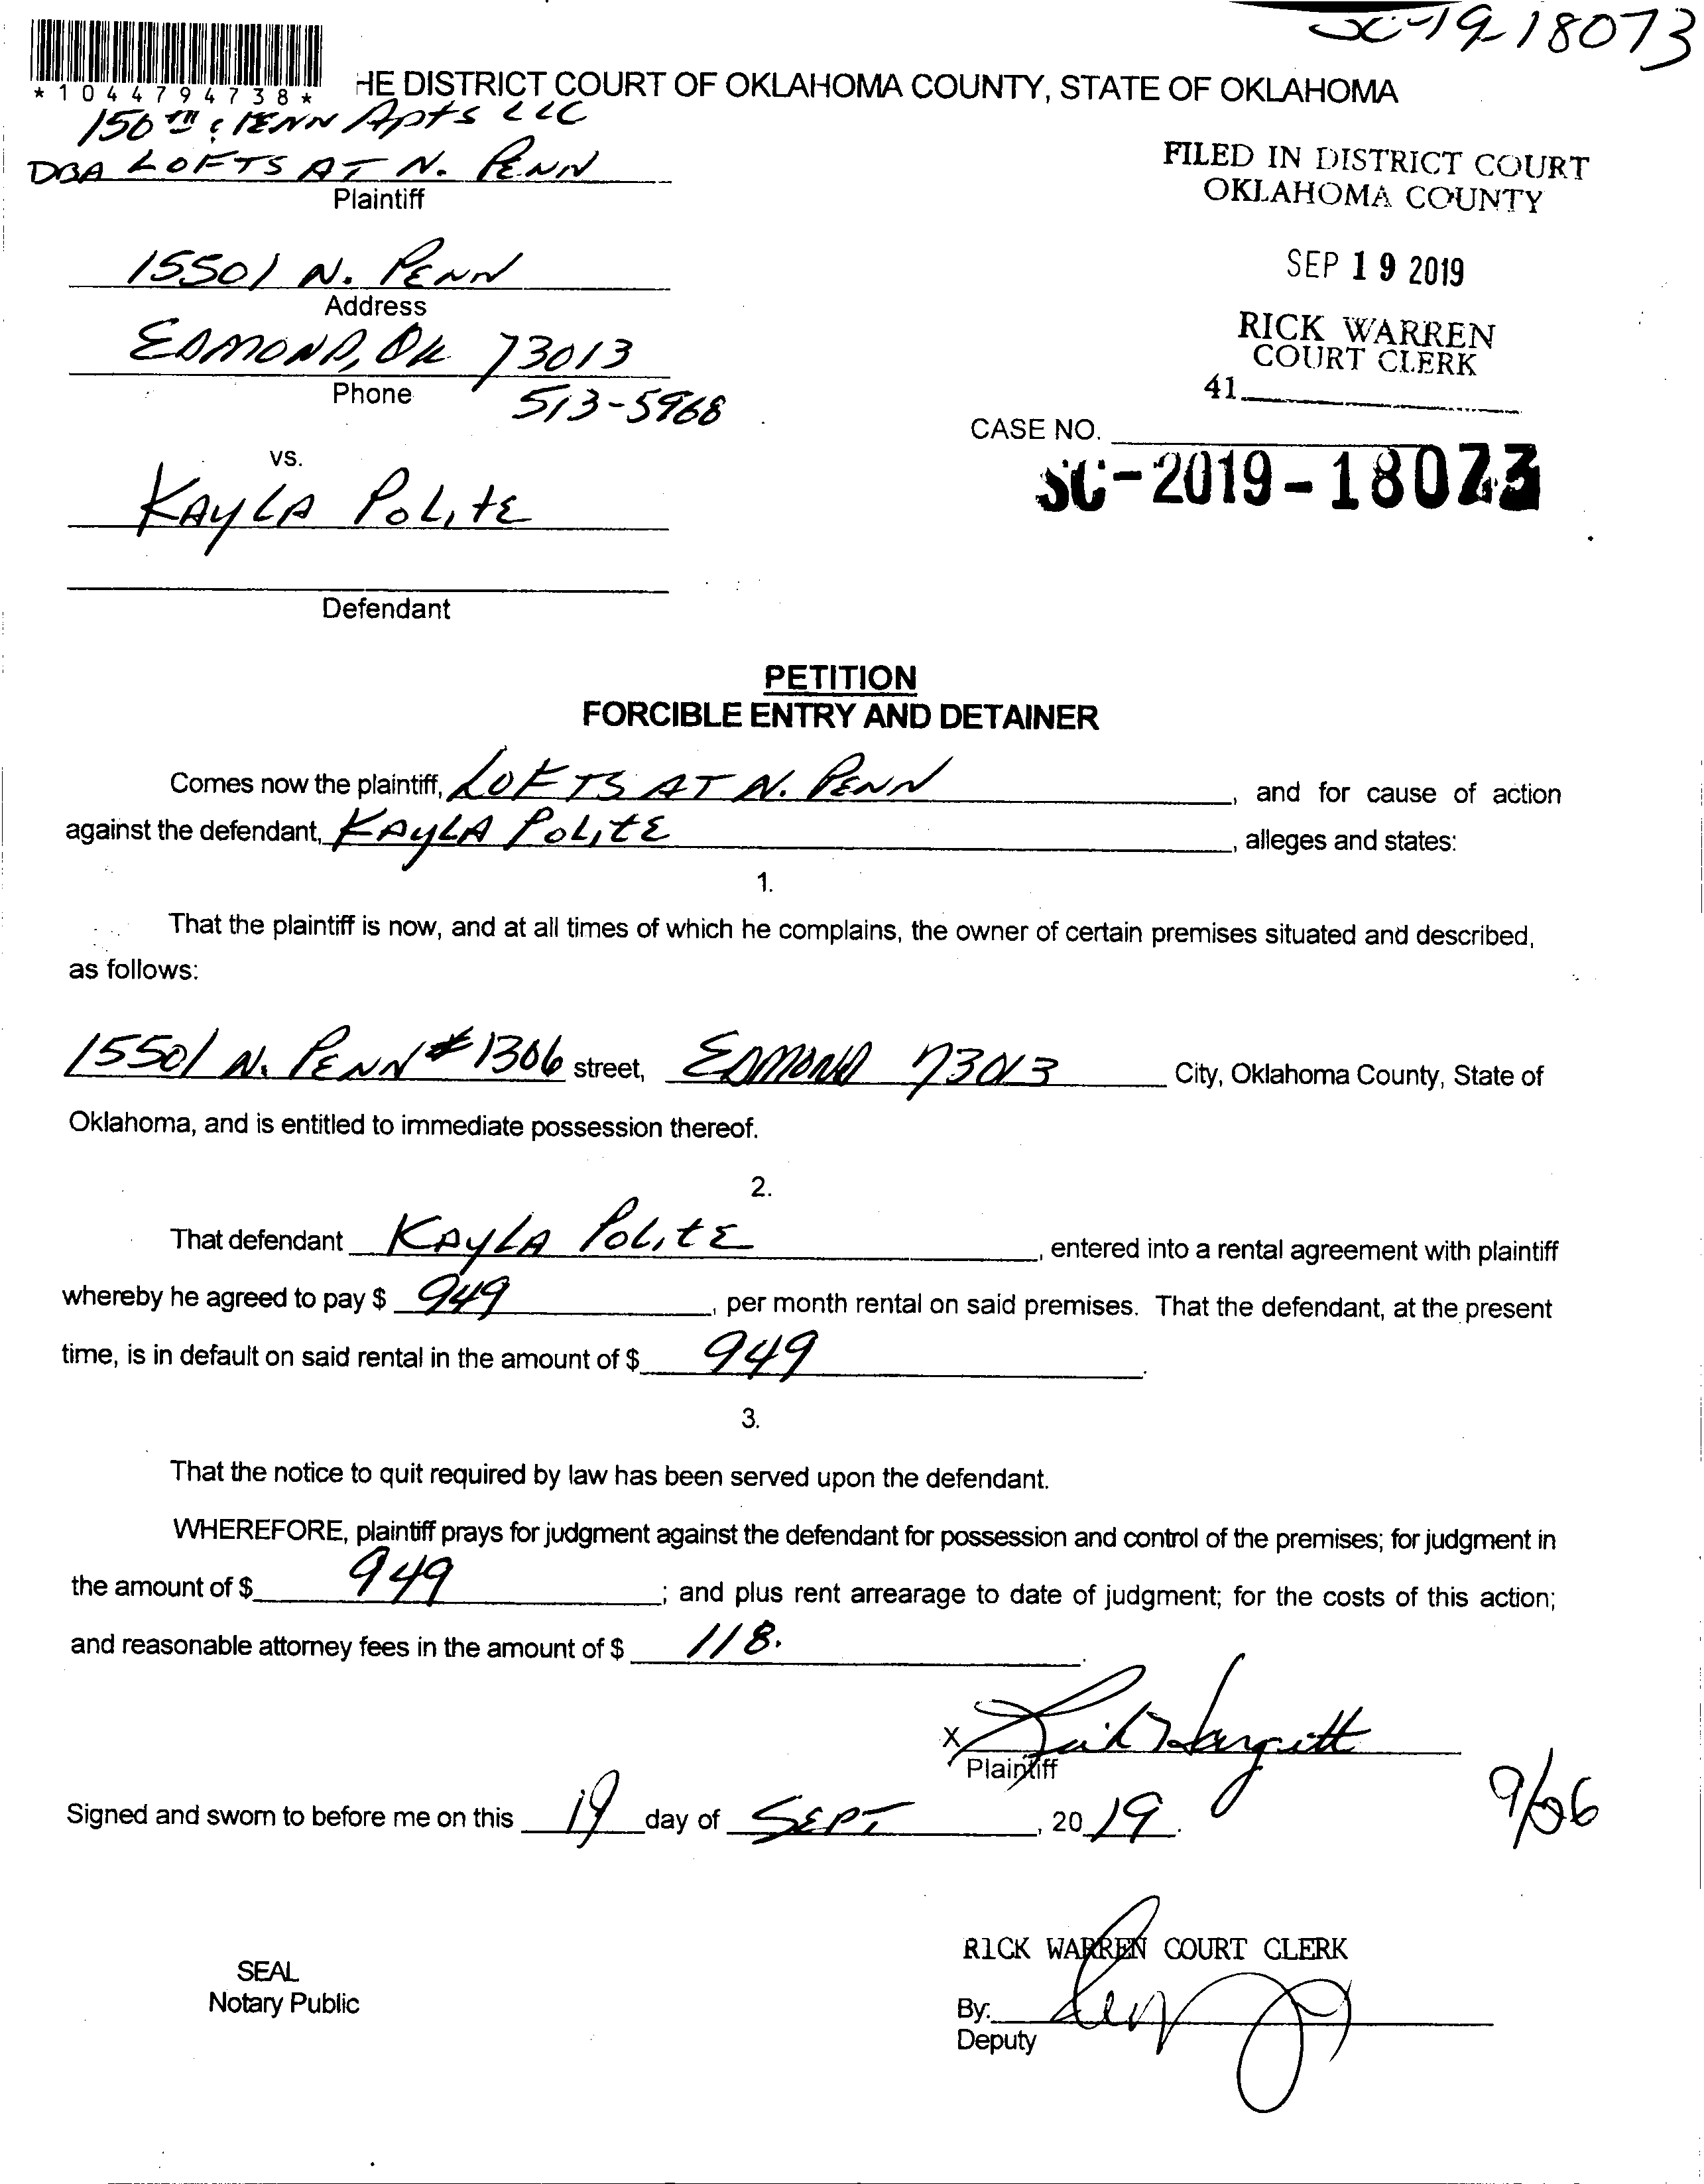 SC-19-18073
*1044794738*
HE DISTRICT COURT OF OKLAHOMA COUNTY, STATE OF OKLAHOMA
150TH & PENN Apts LLC
DBA LOFTS AT N. PENN
Plaintiff
FILED IN DISTRICT COURT
OKLAHOMA COUNTY
15501 N. PENN
Address
SEP 19 2019
EDMOND, OK 73013
Phone
513-5968
RICK WARREN
COURT CLERK
41
CASE NO.
SC-2019-18073
vs.
KAYLA POLITE
Defendant
PETITION
FORCIBLE ENTRY AND DETAINER
Comes now the plaintiff, LOFTS AT N. PENN, and for cause of action
against the defendant, KAYLA POLITE, alleges and states:
1.
That the plaintiff is now, and at all times of which he complains, the owner of certain premises situated and described,
as follows:
15501 N. PENN #1306 street, EDMOND 73013 City, Oklahoma County, State of
Oklahoma, and is entitled to immediate possession thereof.
2.
That defendant KAYLA POLITE, entered into a rental agreement with plaintiff
whereby he agreed to pay $ 949, per month rental on said premises. That the defendant, at the present
time, is in default on said rental in the amount of $ 949.
3.
That the notice to quit required by law has been served upon the defendant.
WHEREFORE, plaintiff prays for judgment against the defendant for possession and control of the premises; for judgment in
the amount of $ 949; and plus rent arrearage to date of judgment; for the costs of this action;
and reasonable attorney fees in the amount of $ 118.
X
Plaintiff
9/26
Signed and sworn to before me on this 19 day of SEPT, 2019.
RICK WARREN COURT CLERK
SEAL
Notary Public
By:
Deputy